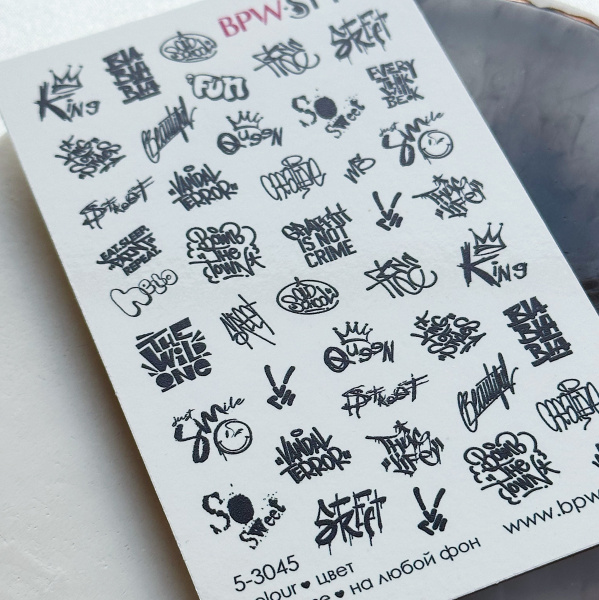 BPW·ST
King
BLA
BLA BLA
BLA
OLD
SCHOOL
FUN
FREE
STREET
Beautiful
Queen
SO
Sweet
EVERY
DAY
BEAK
Street
VANDAL
TERROR
CREATIVE
just
Smile
EAT.SLEEP
PAINT
REPEAT
BOMB
THE
TOWN
GRAFFITI
IS NOT
CRIME
THUG
LIFE
Hello
STREET
OLD
SCHOOL
FREE
King
THE
WILD
ONE
Queen
BLA
BLA BLA
BLA
just
Smile
Street
Beautiful
CREATIVE
VANDAL
TERROR
THUG
LIFE
BOMB
THE
TOWN
SO
Sweet
STREET
5-3045
olour ♥ цвет
♥ на любой фон
www.bpw